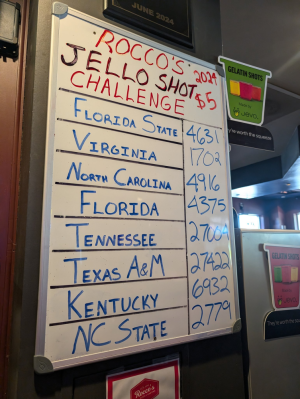 JUNE 2024
ROCCO'S
JELLO SHOT 2024
CHALLENGE $5
FLORIDA STATE 4631
VIRGINIA 1702
NORTH CAROLINA 4916
FLORIDA 4375
TENNESSEE
TEXAS A&M 27422
KENTUCKY 6932
NC STATE 2779
GELATIN SHOTS
They're worth the squeeze
GELATIN SHOTS
Rocco's